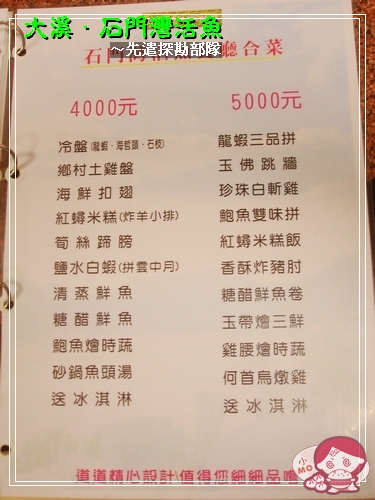 大溪．石門灣活魚
～先遣探勘部隊
4000元
冷盤(龍蝦、海哲頭、石蚊)
鄉村土雞盤
海鮮扣翅
紅蟳米糕(炸羊小排)
筍絲蹄膀
鹽水白蝦(拼雲中月)
清蒸鮮魚
糖醋鮮魚
鮑魚燴時蔬
砂鍋魚頭湯
送冰淇淋
5000元
龍蝦三品拼
玉佛跳牆
珍珠白斬雞
鮑魚雙味拼
紅蟳米糕飯
香酥炸豬肘
糖醋鮮魚卷
玉帶燴三鮮
雞腰燴時蔬
何首烏燉雞
送冰淇淋
道道精心設計\值得您細細品嚐
小
MO